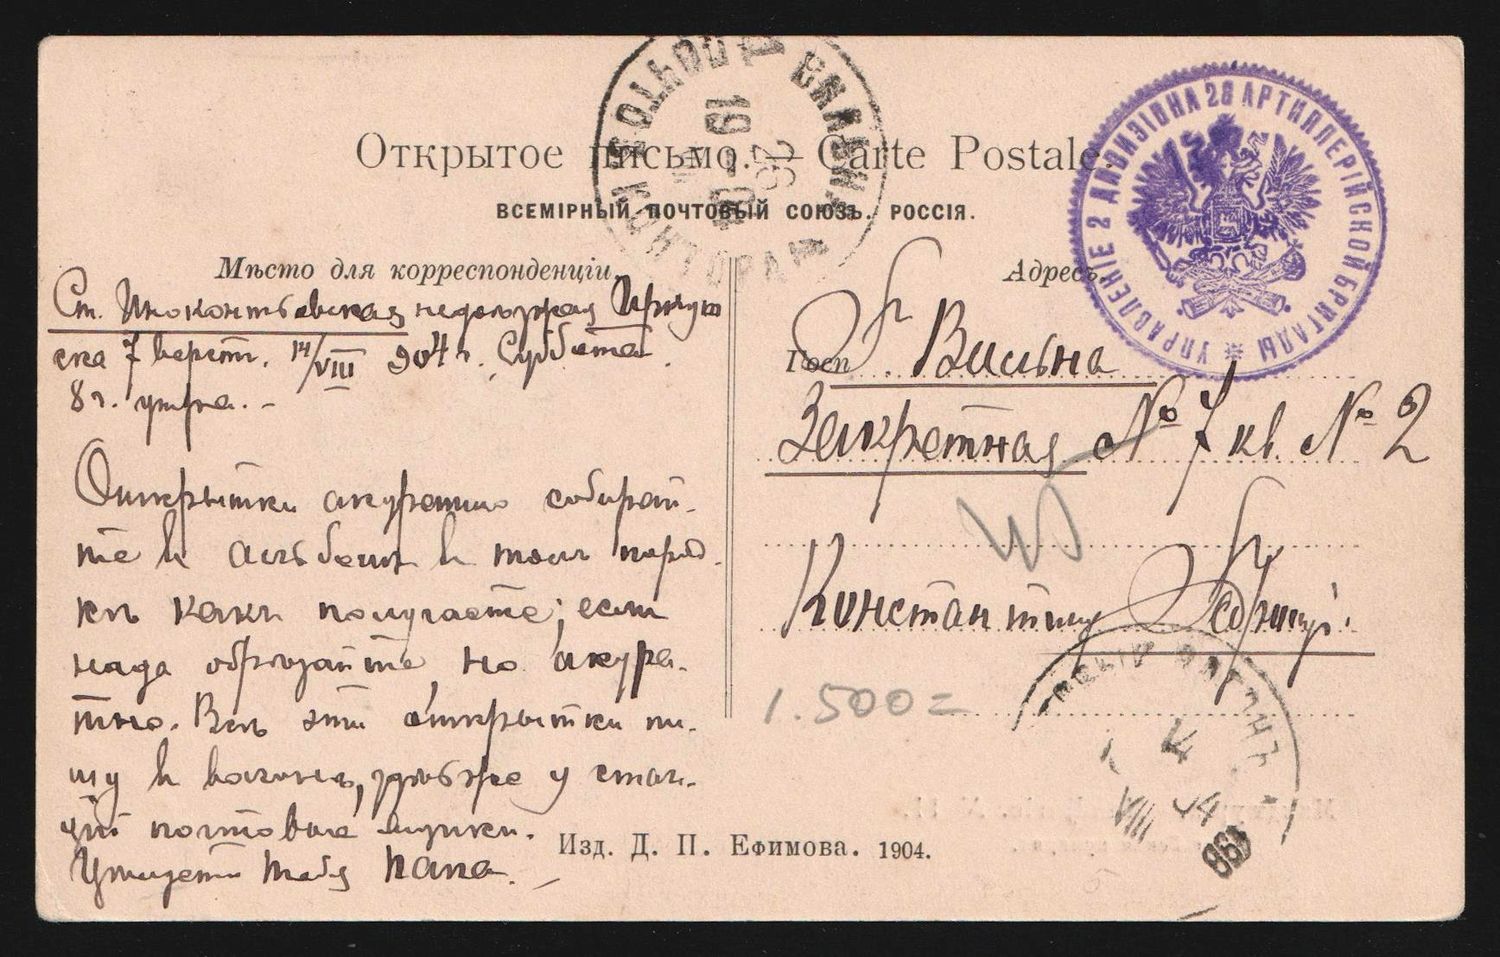 Открытое письмо. — Carte Postale.
ВСЕМІРНЫЙ ПОЧТОВЫЙ СОЮЗЪ. РОССІЯ.
УПРАВЛЕНІЕ 2 ДИВИЗІОНА 28 АРТИЛЛЕРІЙСКОЙ БРИГАДЫ
ВИЛЬНА
19 04
26
Мѣсто для корреспонденціи.
Ст. Инокентьевская недоѣзжая Иркут
ска 7 верст. 14/VIII 904 г. Суббота.
8 ч. утра. -
Открытки акуратно собирай-
те в альбомъ в том поряд-
кѣ какъ получаете; если
надо обрѣзайте, но акура-
тно. Всѣ эти открытки пи-
шу в вагонѣ, у стан-
цій почтовые ящики.
Цѣлует тебя Папа.
Адресъ.
Госп
г. Вильна
Закретная № 7 кв. № 2
Константину
1.500=
ВАГОНЪ
4
VIII 04
Изд. Д. П. Ефимова. 1904.